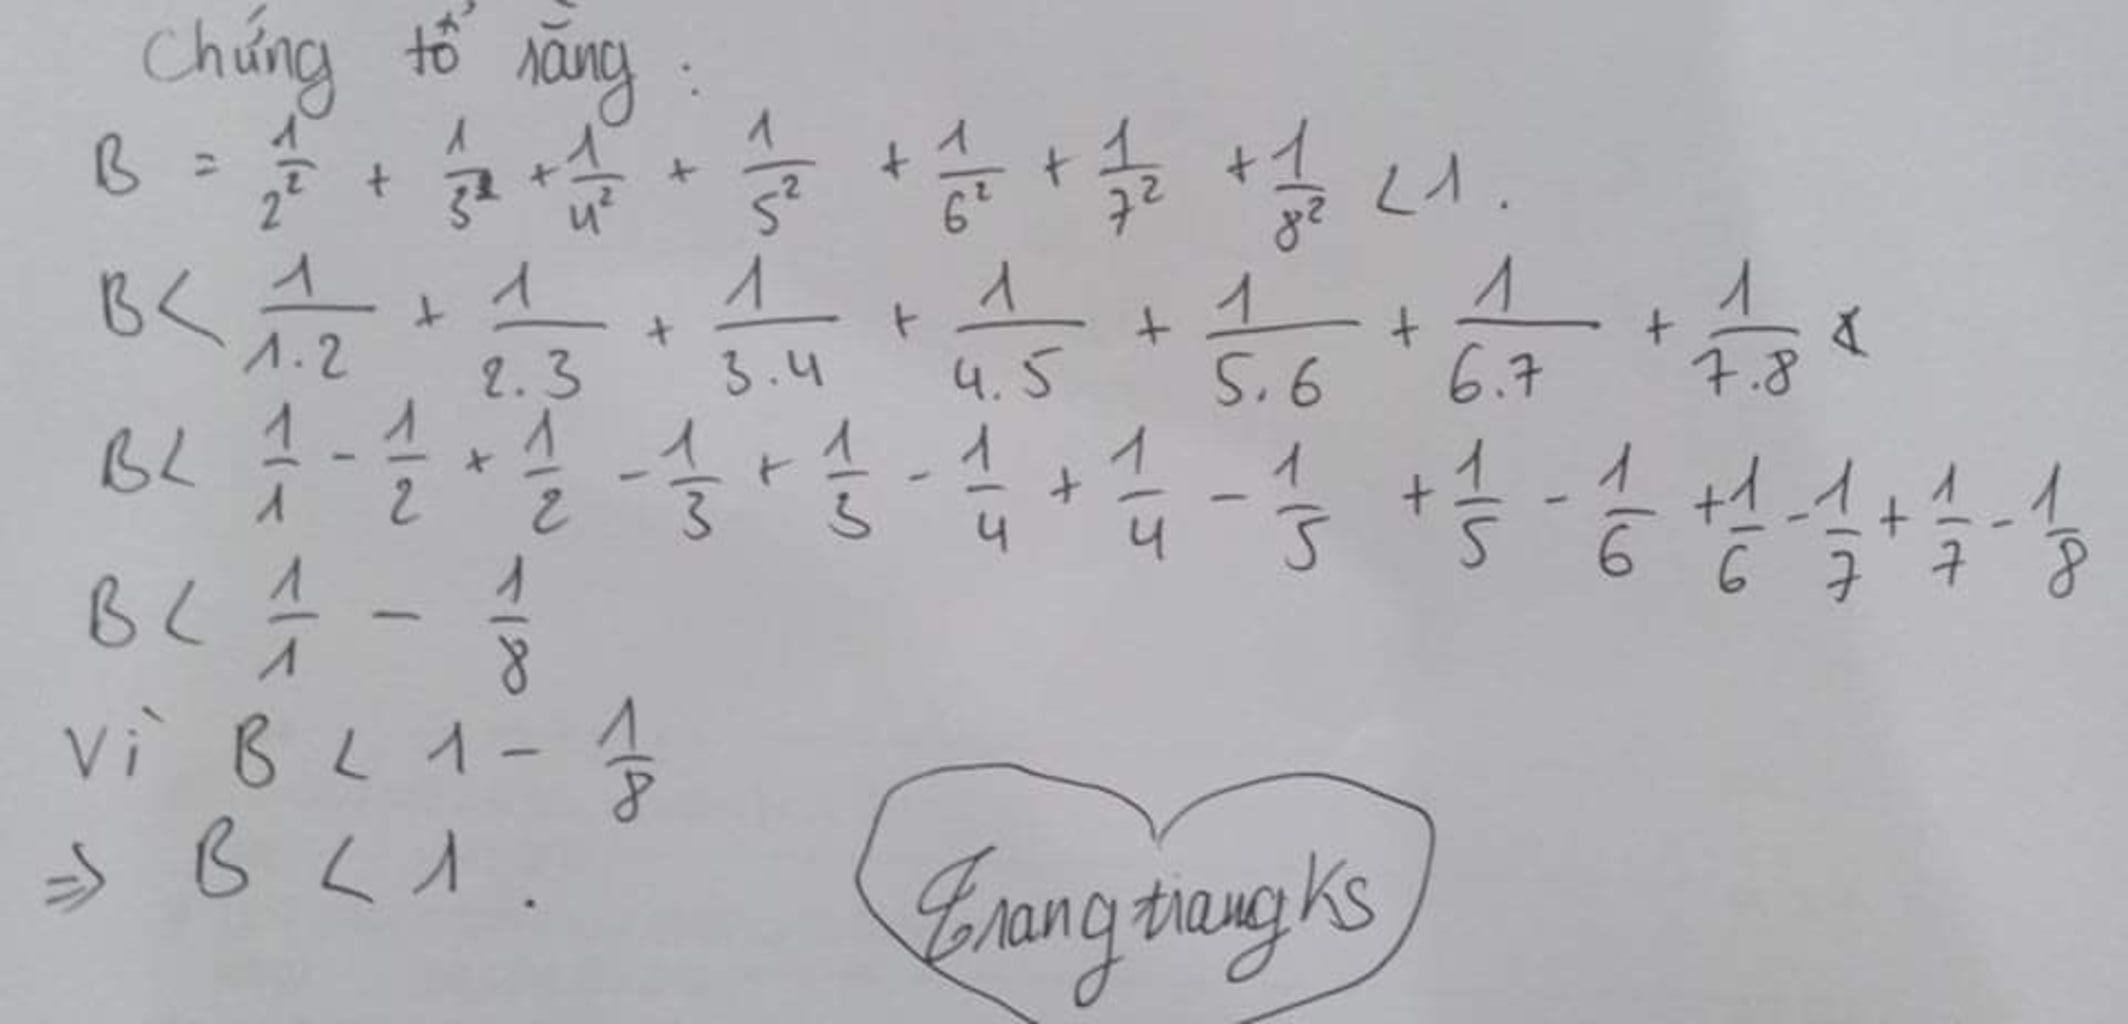 Chứng tổ rằng :
B = 1/2² + 1/3² + 1/4² + 1/5² + 1/6² + 1/7² + 1/8² < 1 .
B < 1/1.2 + 1/2.3 + 1/3.4 + 1/4.5 + 1/5.6 + 1/6.7 + 1/7.8
B < 1/1 - 1/2 + 1/2 - 1/3 + 1/3 - 1/4 + 1/4 - 1/5 + 1/5 - 1/6 + 1/6 - 1/7 + 1/7 - 1/8
B < 1/1 - 1/8
Vì B < 1 - 1/8
⇒ B < 1 .
TrangtrangKS